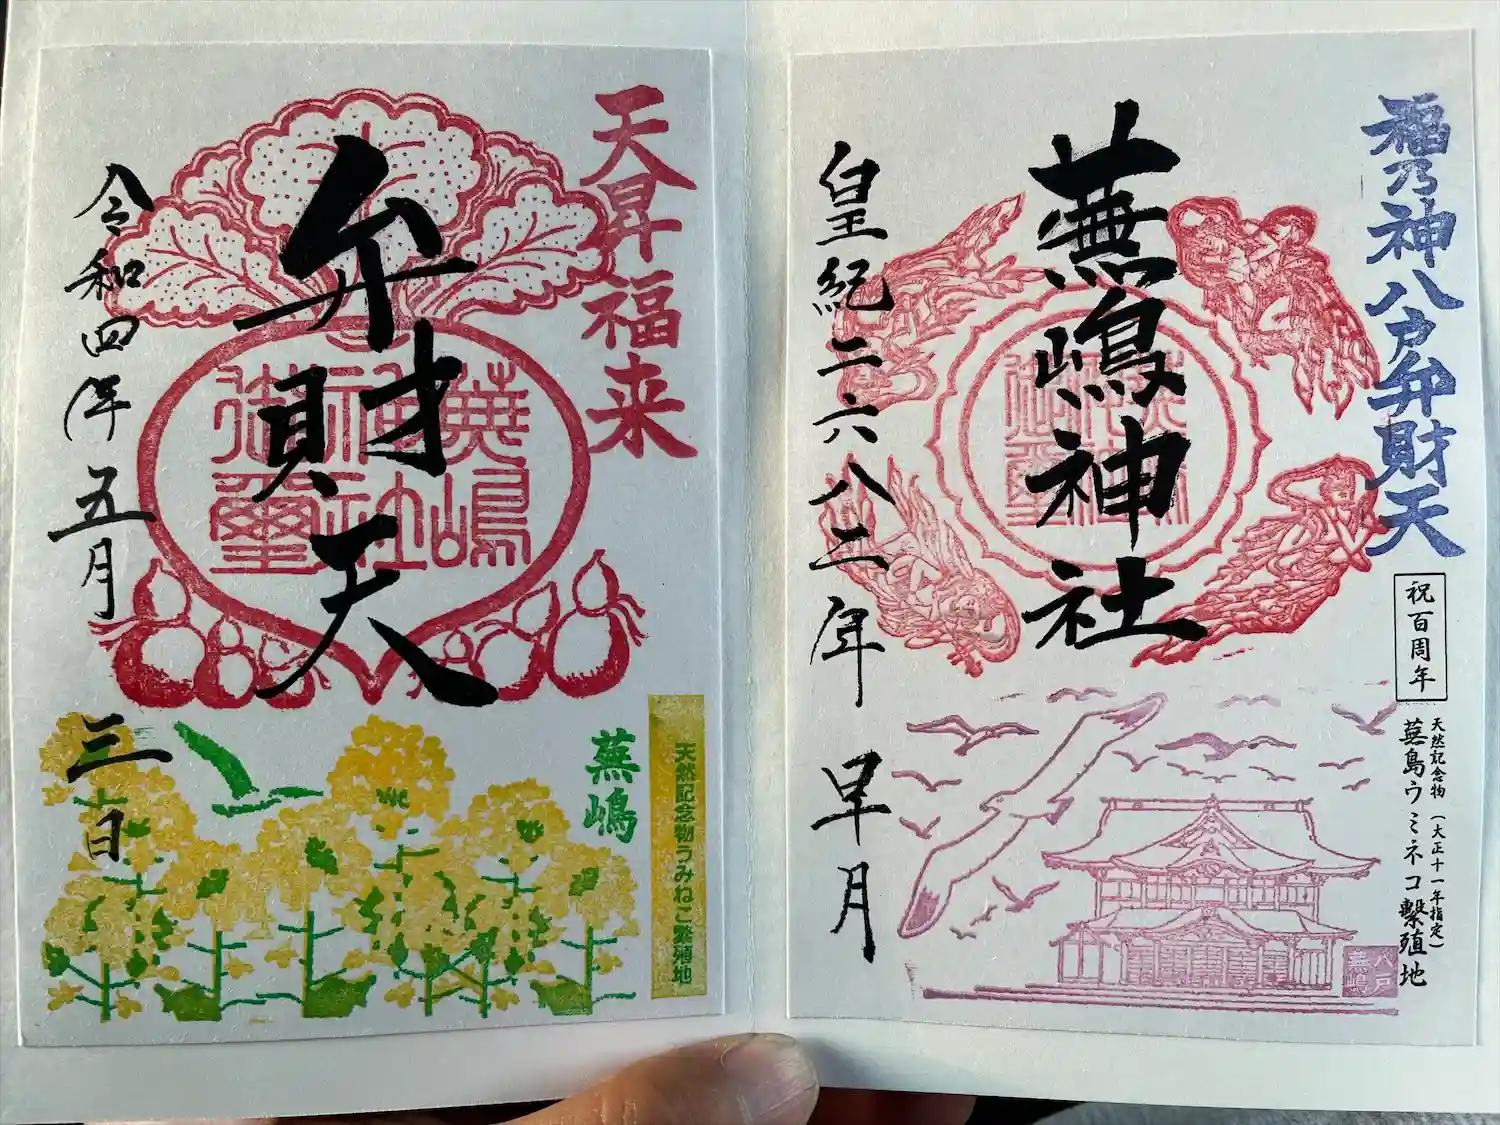 福乃神八戸弁財天
祝百周年
天然記念物(大正十一年指定)
蕪島ウミネコ繫殖地
蕪嶋神社
皇紀二六八二年 早月
八戸
蕪嶋
天昇福来
弁財天
蕪嶋
神社
御璽
令和四年五月三日
蕪嶋
天然記念物うみねこ繁殖地